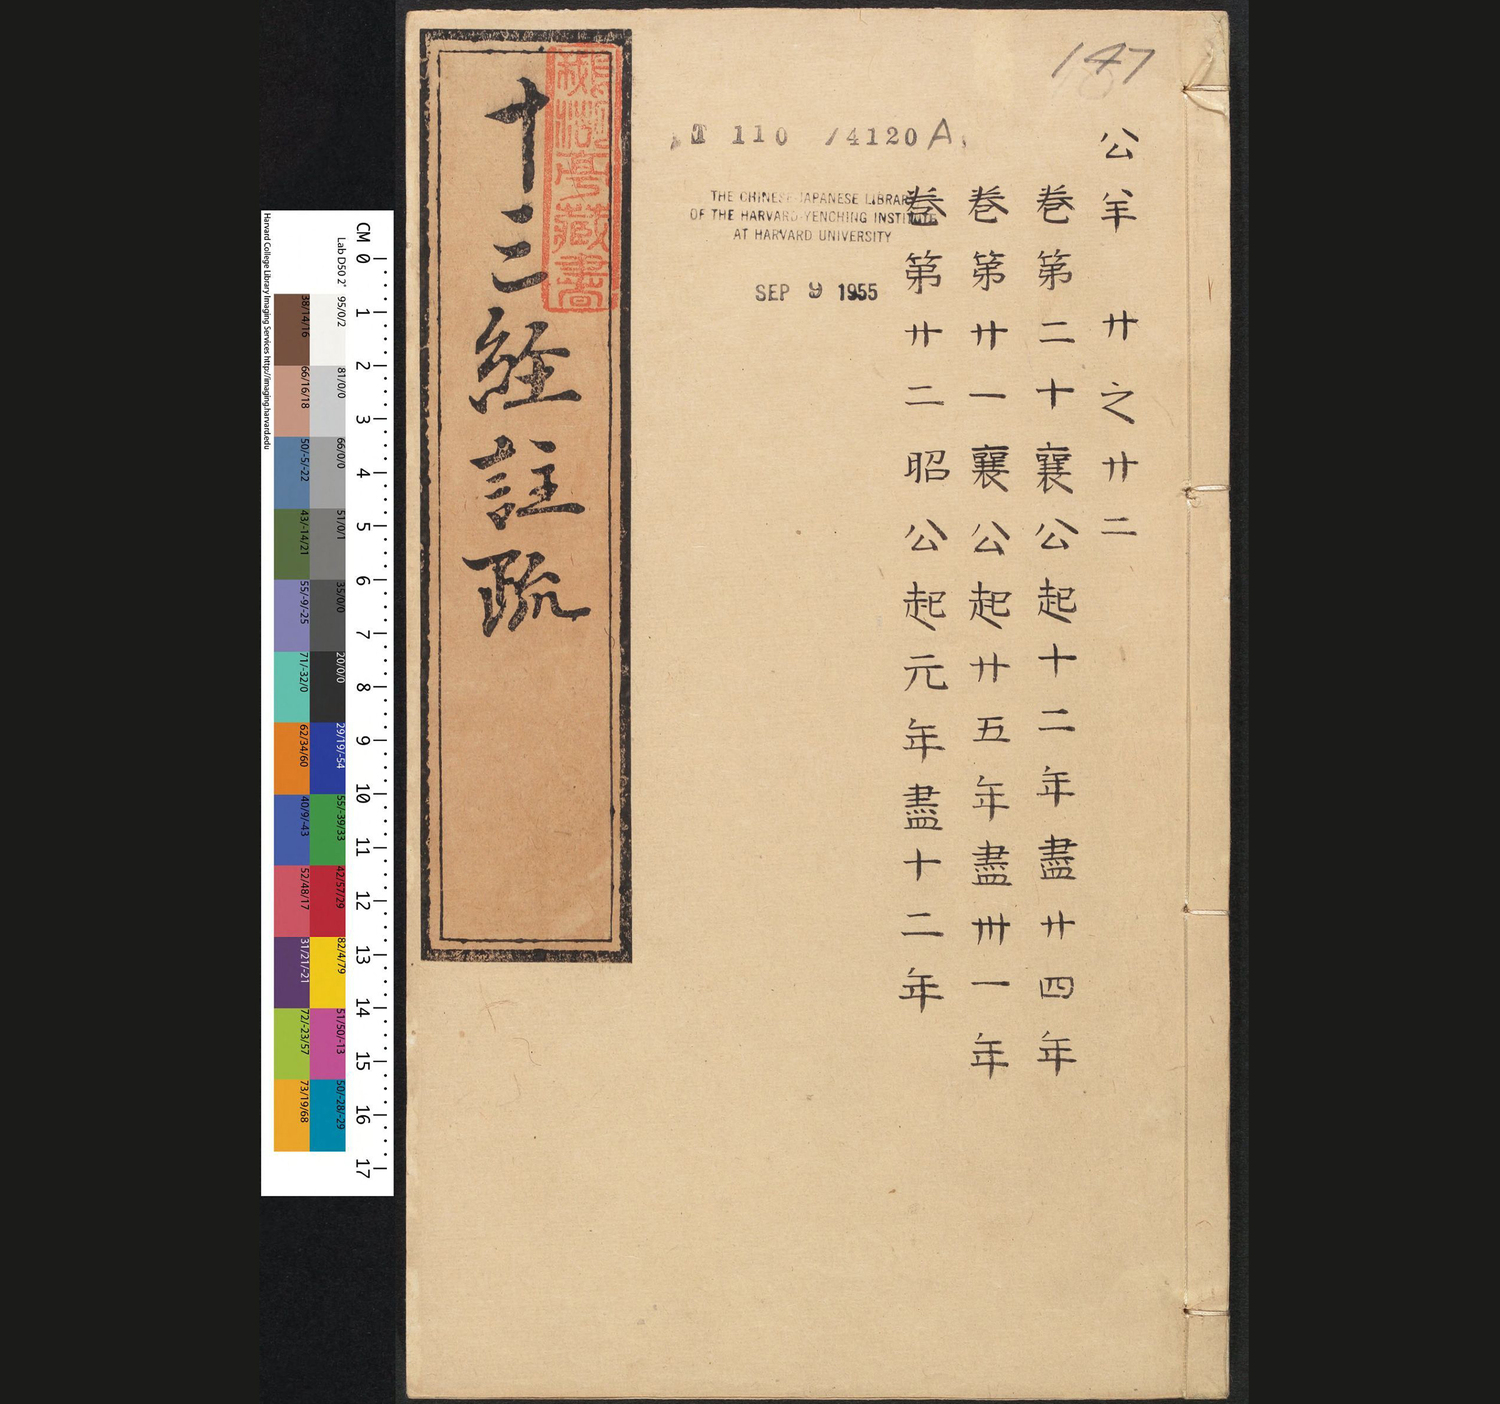 147
公羊 廿之廿二
卷第二十襄公起十二年盡廿四年
卷第廿一襄公起廿五年盡卅一年
卷第廿二昭公起元年盡十二年
T 110 /4120 A
THE CHINESE-JAPANESE LIBRARY
OF THE HARVARD-YENCHING INSTITUTE
AT HARVARD UNIVERSITY
SEP 9 1955
十三經註疏
藏書
CM 0 1 2 3 4 5 6 7 8 9 10 11 12 13 14 15 16 17
Lab D50 2° 95/0/2 81/0/0 66/0/0 51/0/1 35/0/0 20/0/0 29/19/-54 55/-39/33 42/57/29 82/4/79 51/50/-13 50/-28/-29
38/14/16 66/16/18 50/-5/-22 43/-14/21 55/-9/-25 71/-32/0 62/34/60 40/9/-43 52/48/17 31/21/-21 72/-23/57 73/19/68
Harvard College Library Imaging Services http://imaging.harvard.edu